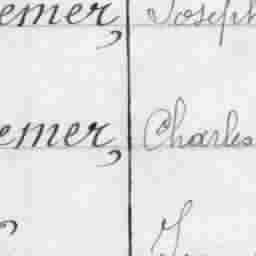 emer, Joseph
emer, Charles